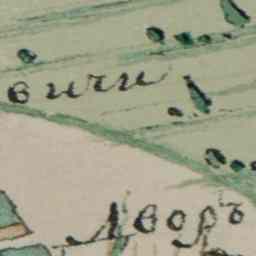 вичи
Дворъ